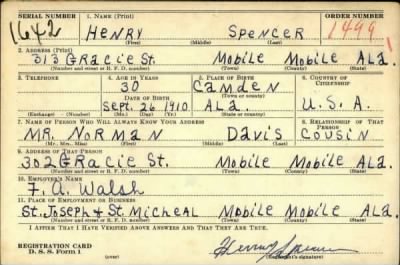 SERIAL NUMBER 1. NAME (Print) ORDER NUMBER
1642 HENRY SPENCER 1499
(First) (Middle) (Last)
2. ADDRESS (Print)
313 GRACIE St. Mobile Mobile ALA.
(Number and street or R. F. D. number) (Town) (County) (State)
3. TELEPHONE 4. AGE IN YEARS 5. PLACE OF BIRTH 6. COUNTRY OF CITIZENSHIP
30 Camden
(Town or county)
DATE OF BIRTH
Sept. 26 1910 ALA. U.S.A.
(Exchange) (Number) (Mo.) (Day) (Yr.) (State or country)
7. NAME OF PERSON WHO WILL ALWAYS KNOW YOUR ADDRESS 8. RELATIONSHIP OF THAT PERSON
MR. NORMAN DAVIS COUSIN
(Mr., Mrs., Miss) (First) (Middle) (Last)
9. ADDRESS OF THAT PERSON
302 GRACIE St. Mobile Mobile ALA.
(Number and street or R. F. D. number) (Town) (County) (State)
10. EMPLOYER'S NAME
F. A. Walsh
11. PLACE OF EMPLOYMENT OR BUSINESS
St. Joseph & St. Micheal Mobile Mobile ALA.
(Number and street or R. F. D. number) (Town) (County) (State)
I AFFIRM THAT I HAVE VERIFIED ABOVE ANSWERS AND THAT THEY ARE TRUE.
REGISTRATION CARD
D. S. S. Form 1 (over) Henry Spencer
(Registrant's signature)